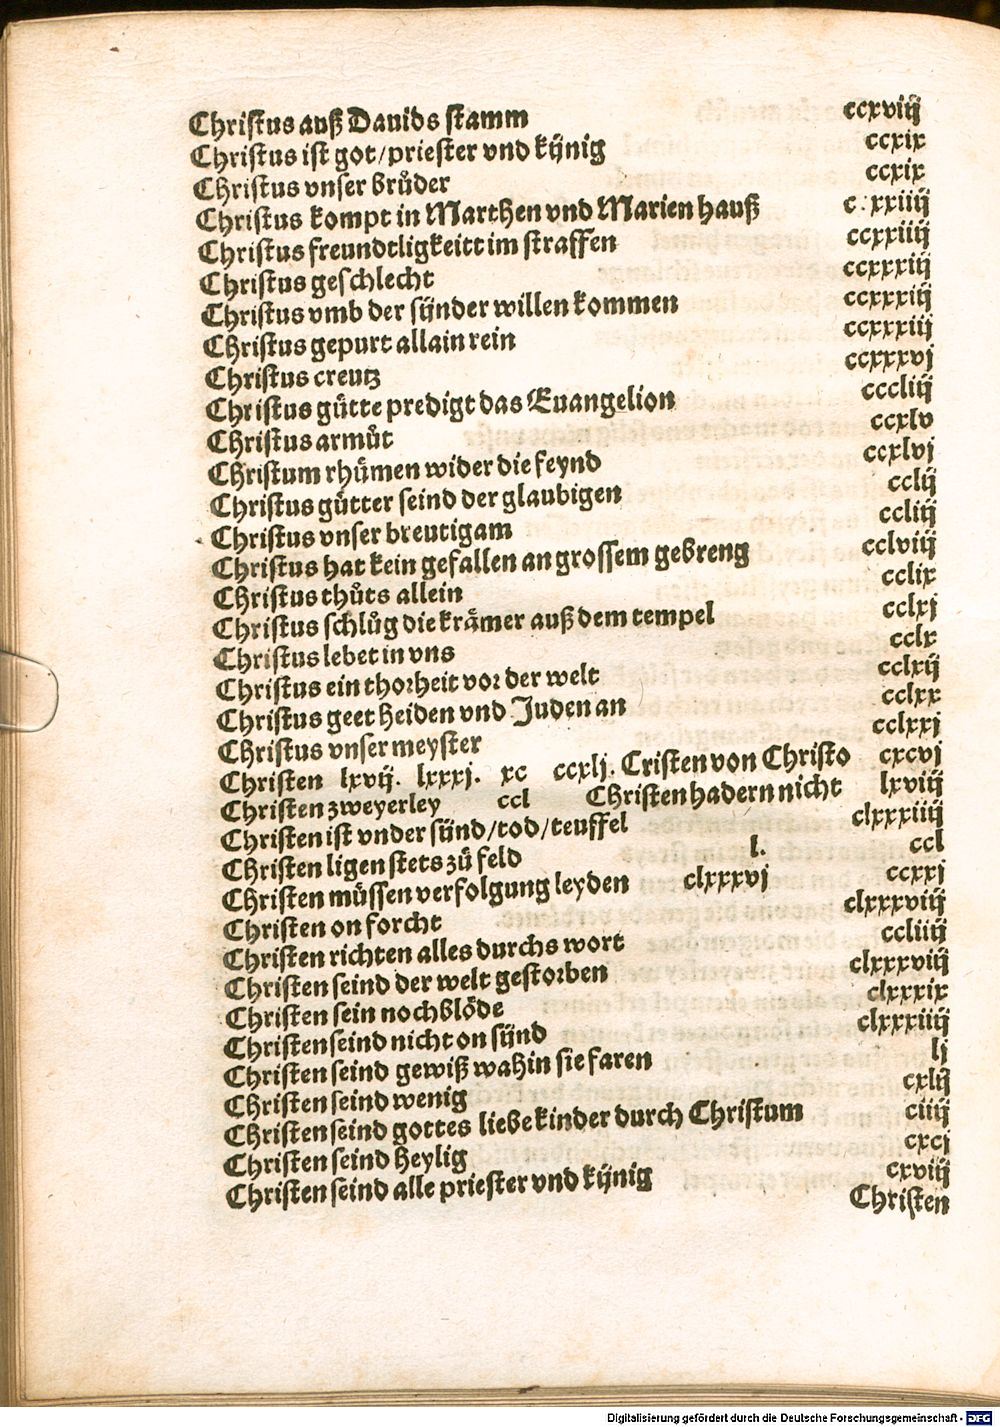 Christus auß Dauids stamm ccxviij
Christus ist got/priester vnd kijnig ccxix
Christus vnser bruͦder ccxix
Christus kompt in Marthen vnd Marien hauß c xxiiij
Christus freundtligkeitt im straffen ccxxiiij
Christus geschlecht ccxxxiij
Christus vmb der sijnder willen kommen ccxxxiij
Christus gepurt allain rein ccxxxiij
Christus creutz ccxxxvj
Christus guͤtte predigt das Euangelion cccliij
Christus armuͦt ccxlv
Christum rhuͤmen wider die feynd ccxlvj
Christus guͤtter seind der glaubigen cclij
Christus vnser breutigam ccliij
Christus hat kein gefallen an grossem gebreng cclviij
Christus thuͦts allein cclix
Christus schluͦg die kraͤmer auß dem tempel cclxj
Christus lebet in vns cclx
Christus ein thorheit vor der welt cclxij
Christus geet heiden vnd Juden an cclxx
Christus vnser meyster cclxxj
Christen lxvij. lxxxj. xc ccxlj. Cristen von Christo cxcvj
Christen zweyerley ccl Christen hadern nicht lxviij
Christen ist vnder sijnd/tod/teuffel clxxxiiij
Christen ligen stets zuͤ feld l. ccl
Christen muͤssen verfolgung leyden clxxxvj ccxxj
Christen on forcht clxxxviij
Christen richten alles durchs wort ccliiij
Christen seind der welt gestorben clxxxviij
Christen sein noch bloͤde clxxxix
Christen seind nicht on sijnd clxxxiiij
Christen seind gewiß wahin sie faren lj
Christen seind wenig cxlij
Christen seind gottes liebe kinder durch Christum ciiij
Christen seind heylig cxcj
Christen seind alle priester vnd kijnig cxviij
Christen
Digitalisierung gefördert durch die Deutsche Forschungsgemeinschaft - DFG